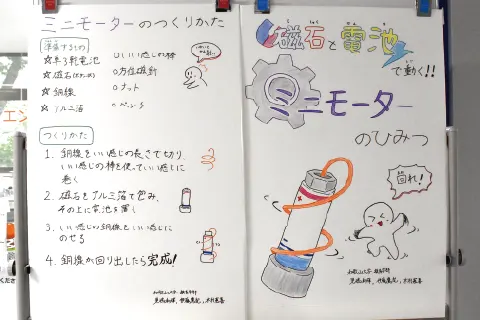 ミニモーターのつくりかた
準備するもの
☆単3乾電池
☆磁石(ネオジム)
☆銅線
☆アルミ箔
○いい感じの棒
○方位磁針
○ナット
○ペンチ
つくりかた
1. 銅線をいい感じの長さで切り、
いい感じの棒を使っていい感じに
巻く
2. 磁石をアルミ箔で包み、
その上に電池を置く
3. いい感じの銅線をいい感じに
のせる
4. 銅線が回り出したら完成!
磁石と電池
じしゃく でんち
で動く!!
ミニモーター
のひみつ
回れ!